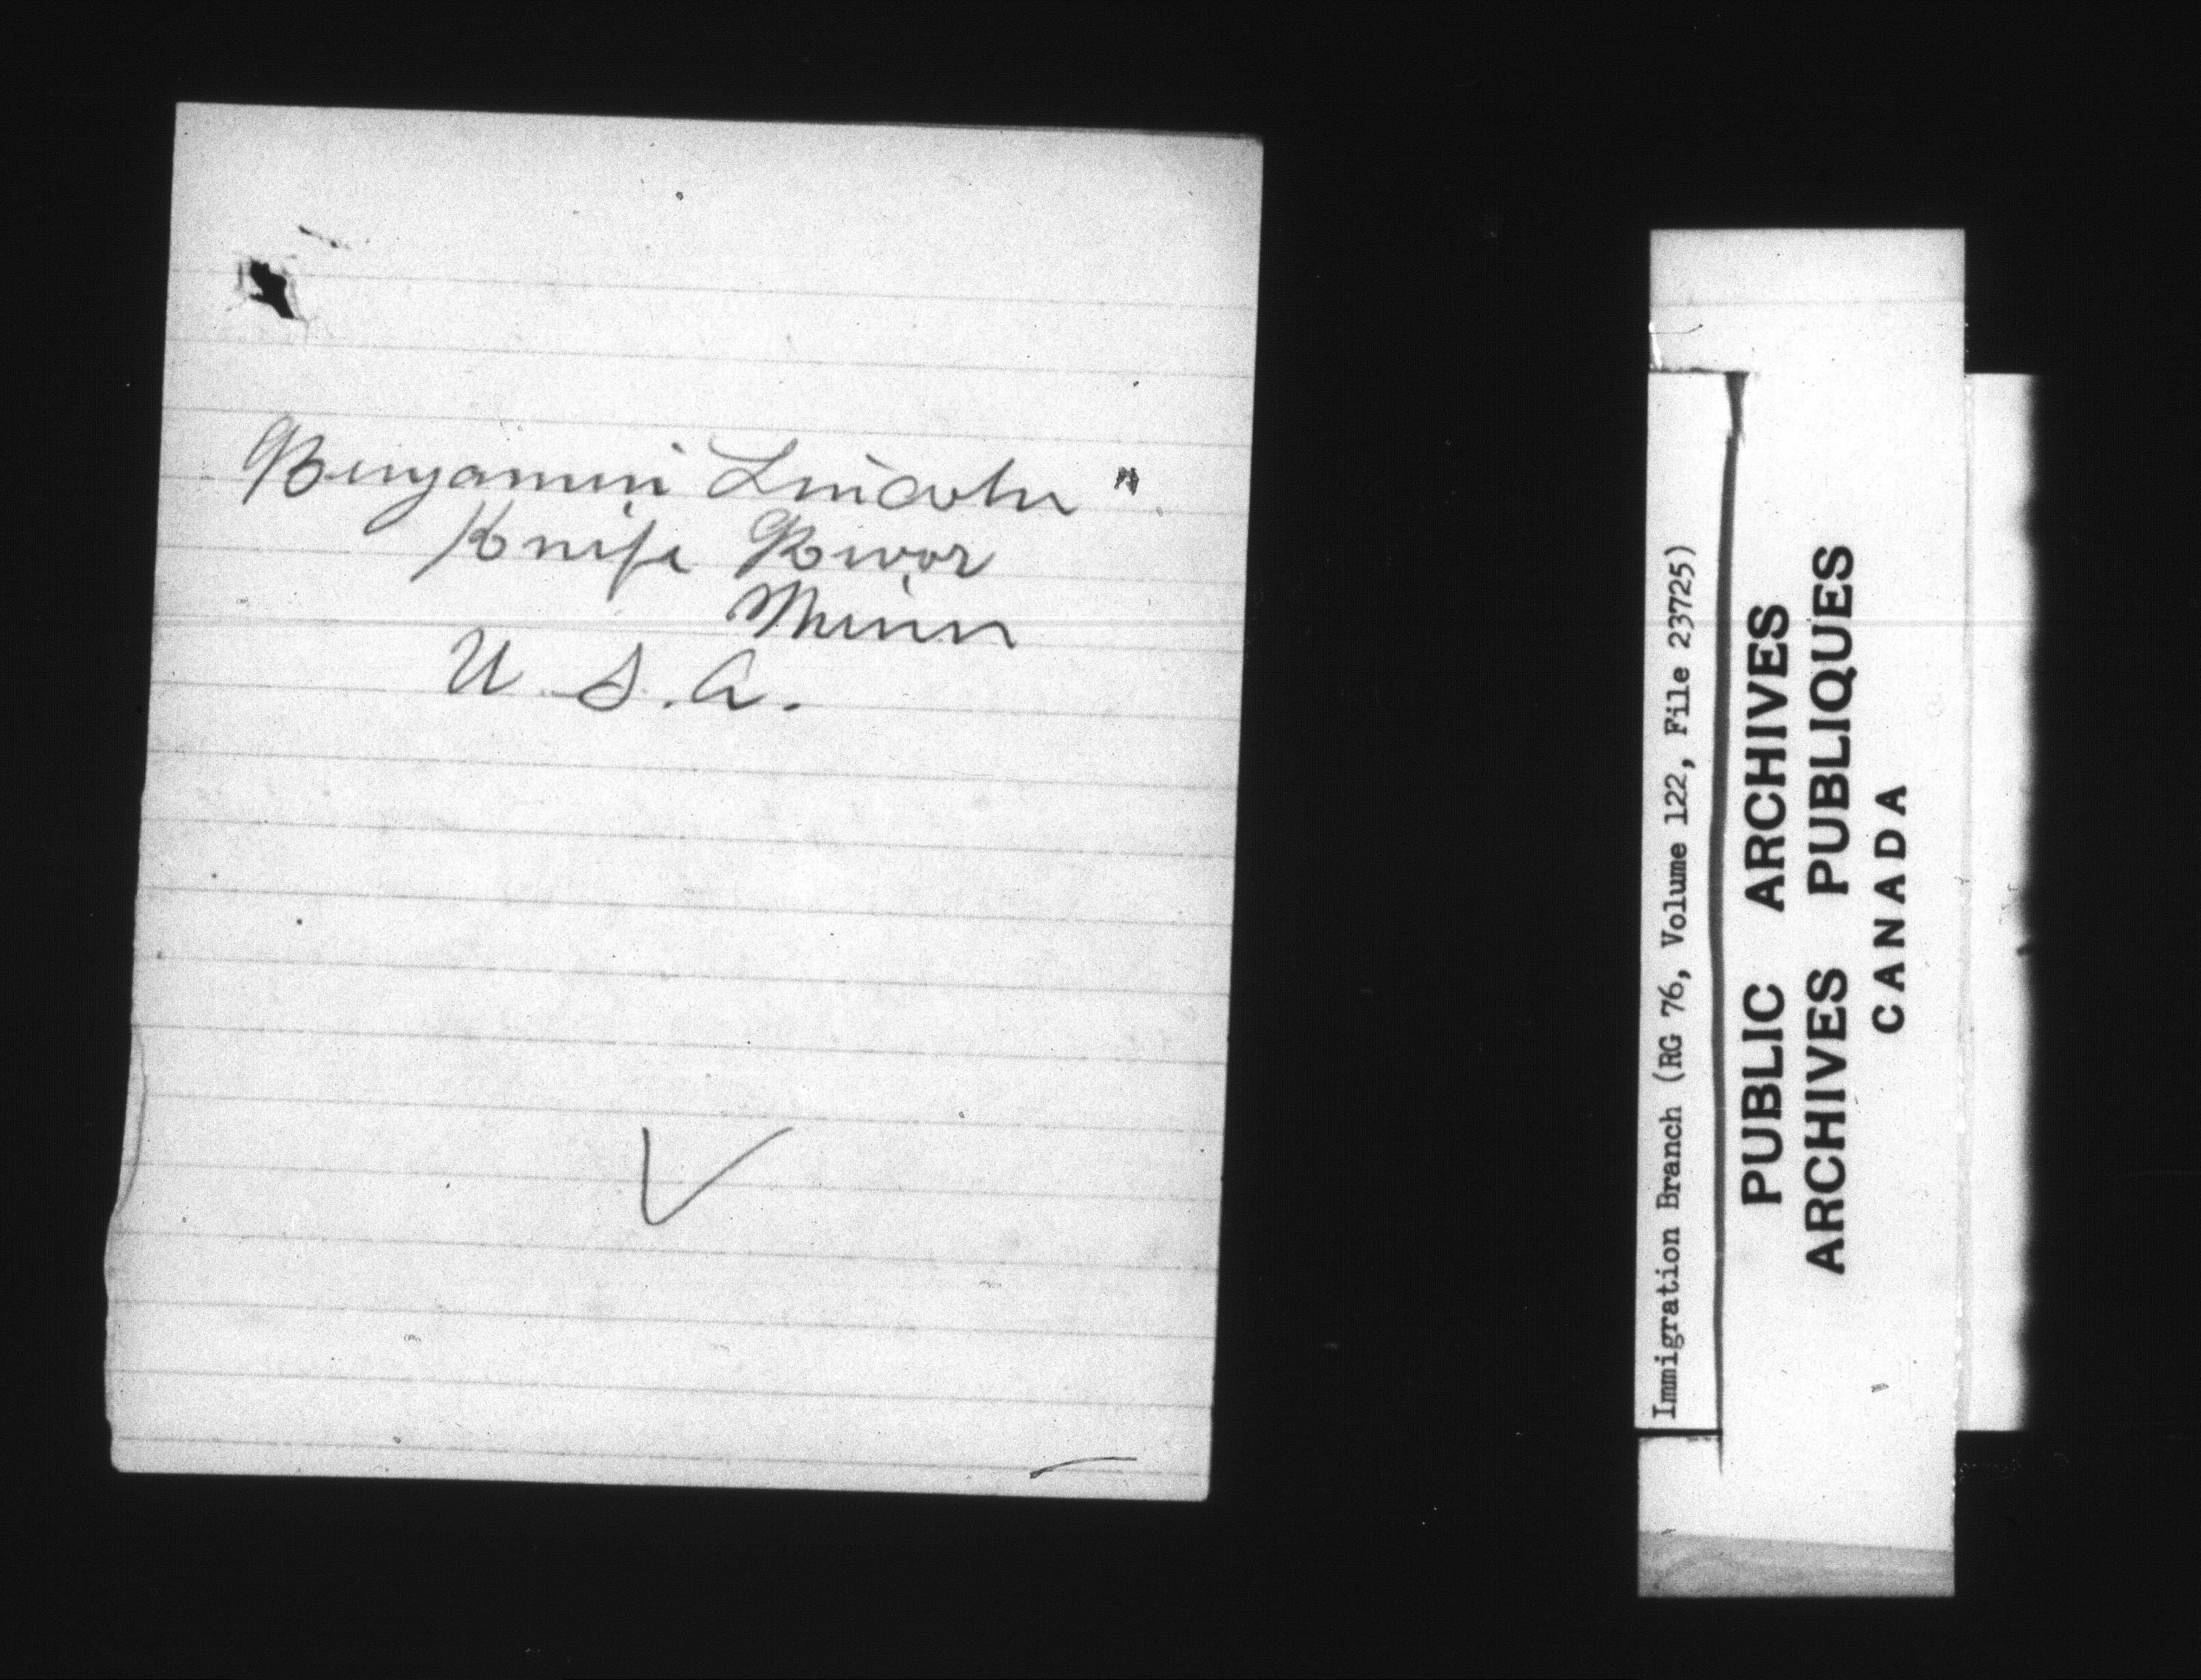 Benjamin Lincoln
Knife River
Minn
U. S. A.
Immigration Branch (RG 76, Volume 122, File 23725)
PUBLIC ARCHIVES
ARCHIVES PUBLIQUES
CANADA